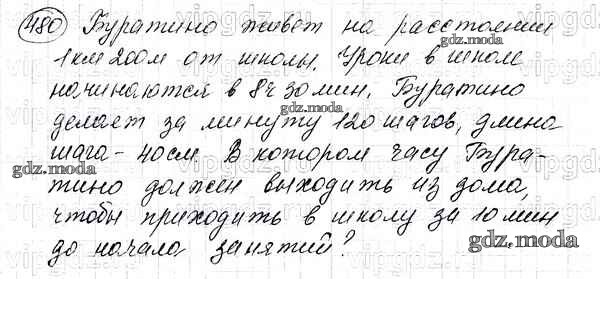 480 Буратино живет на расстоянии
1 км 200 м от школы. Уроки в школе
начинаются в 8 ч 30 мин. Буратино
делает за минуту 120 шагов, длина
шага - 40 см. В котором часу Бура-
тино должен выходить из дома,
чтобы приходить в школу за 10 мин
до начала занятий?
gdz.moda
gdz.moda
gdz.moda
gdz.moda
gdz.moda